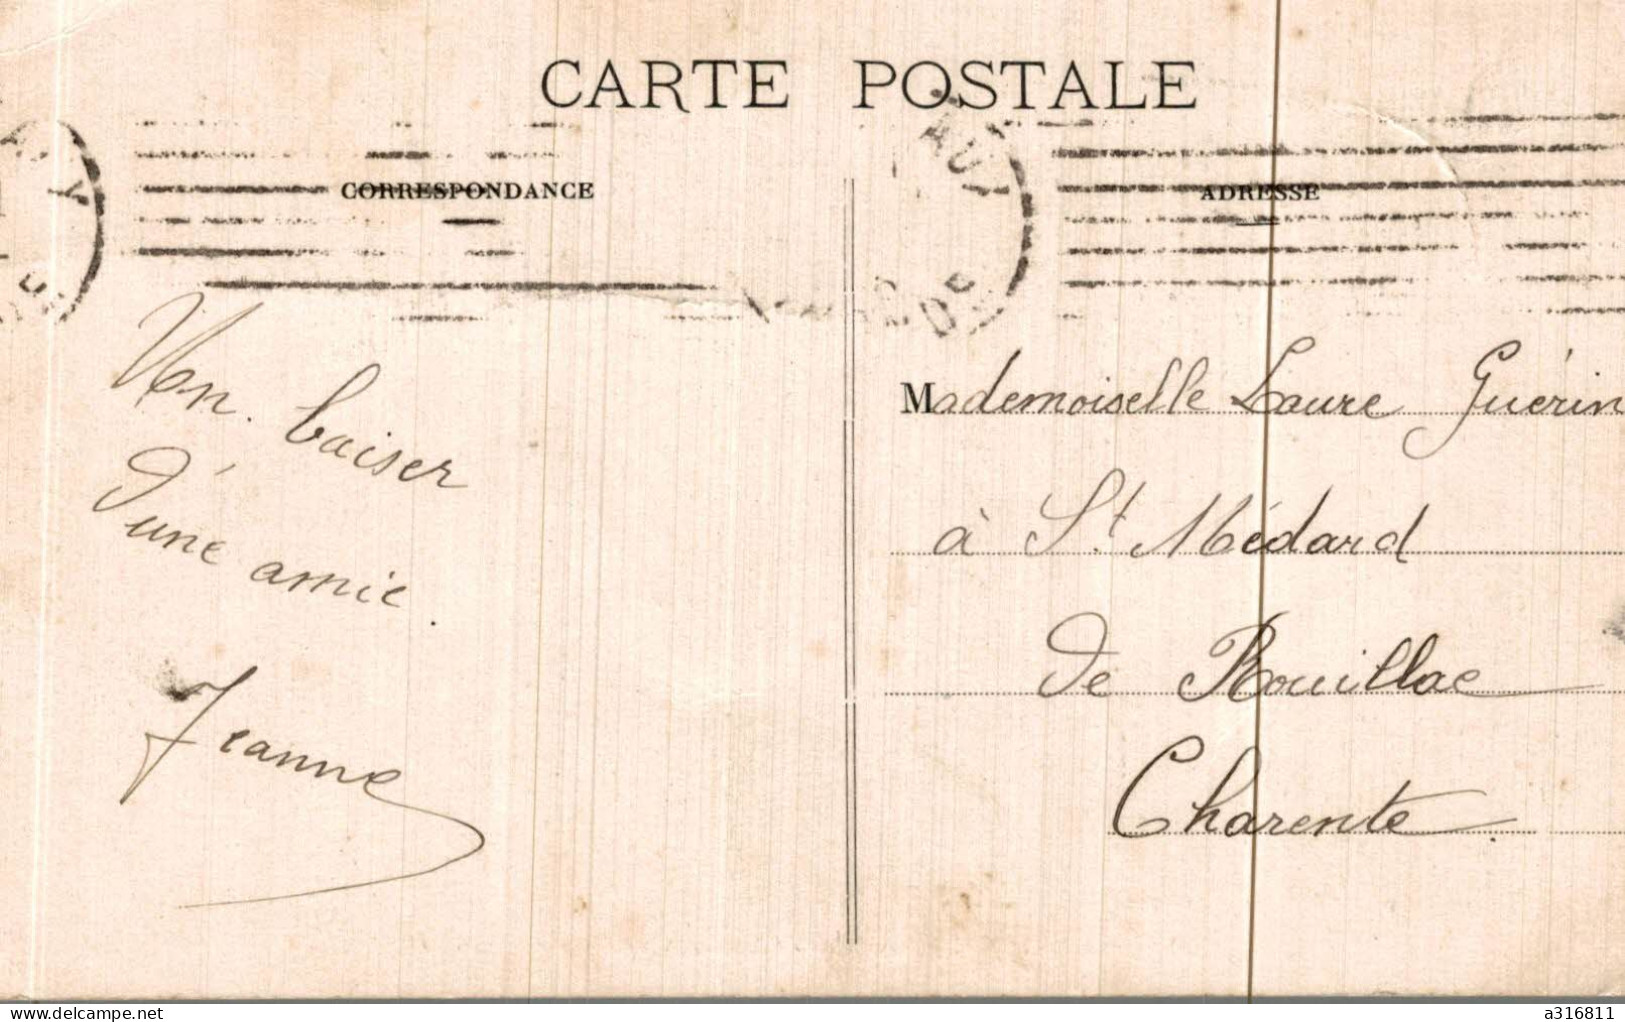 CARTE POSTALE
CORRESPONDANCE
ADRESSE
Un baiser
d'une amie.
Jeanne
Mademoiselle Laure Guérin
à St. Médard
de Rouillac
Charente.
delcampe.net
a316811